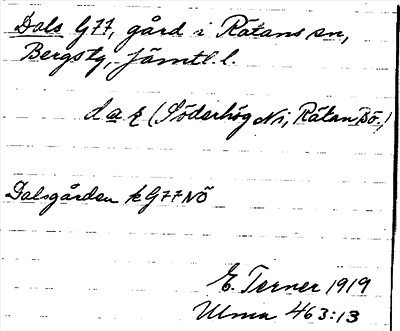 Dals G77, gård i Rätans sn,
Bergs tg, Jämtl. l.
d a ɫ (Söderhög Ni, Rätan Bö.)
Dalsgården k G77 NÖ
E. Terner 1919
Ulma 463:13